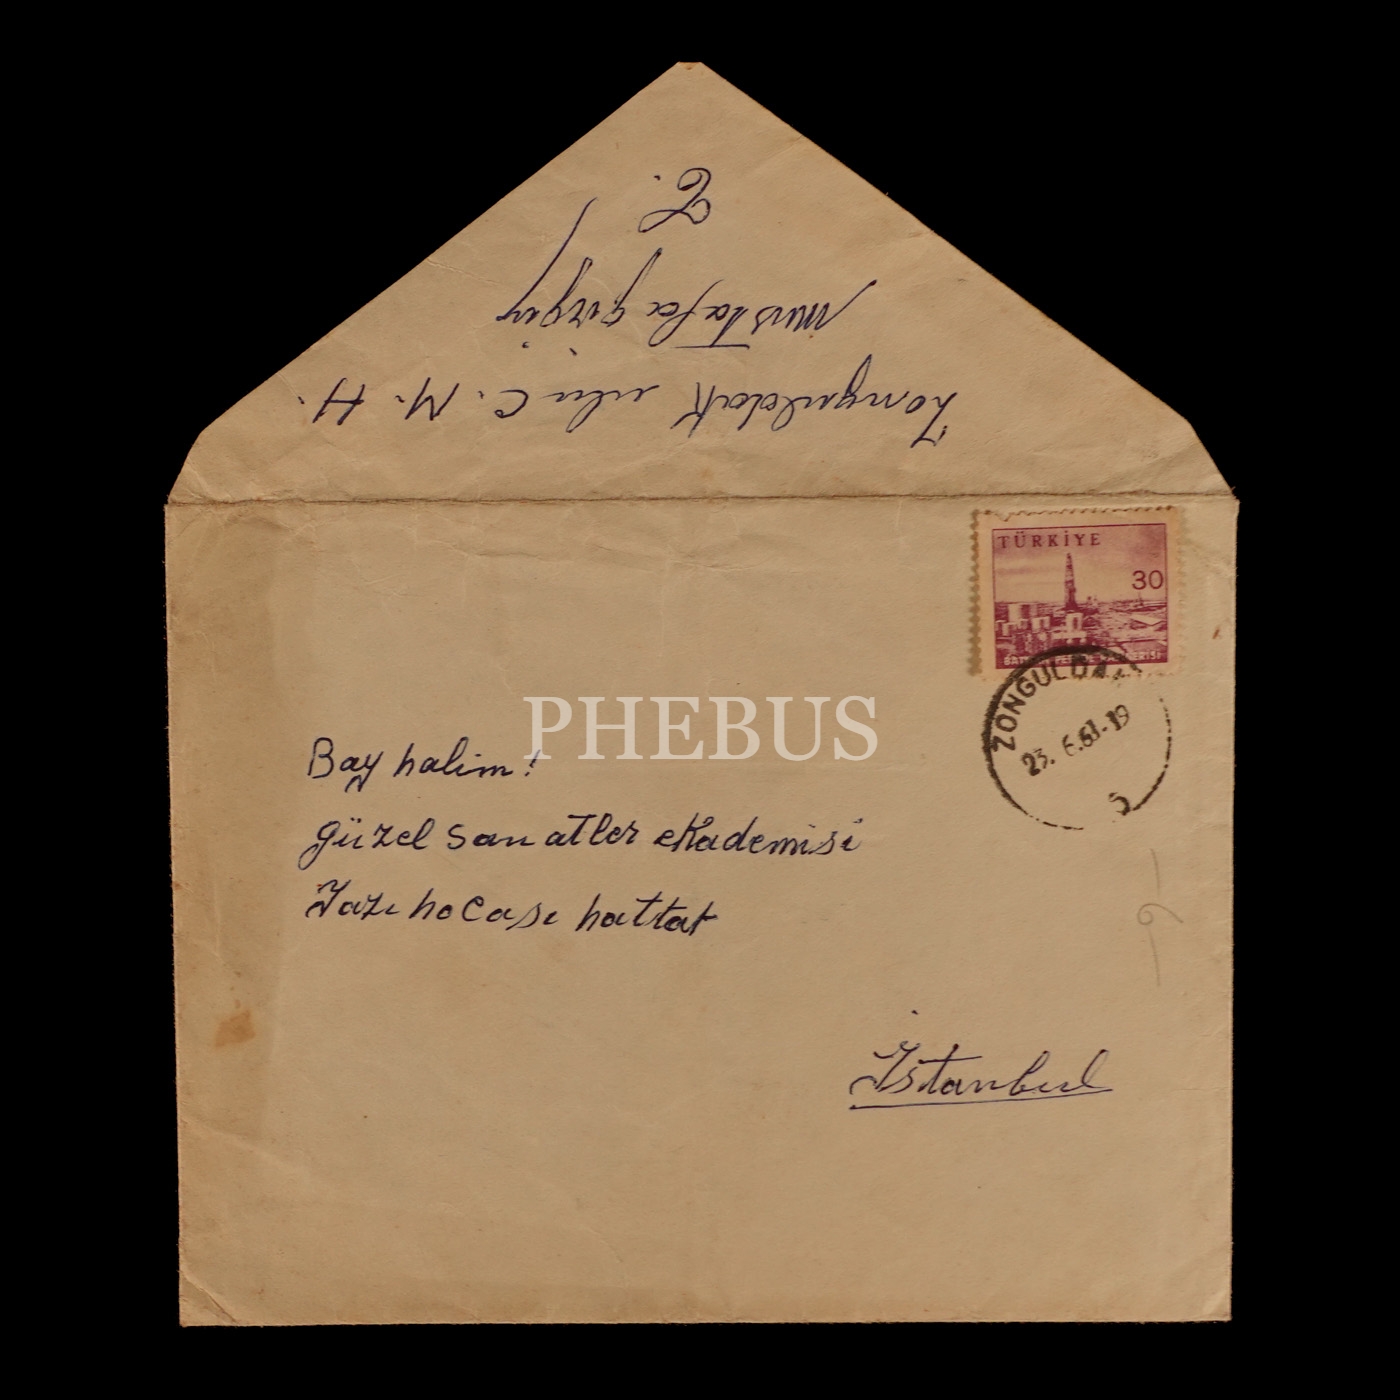 Zonguldak ulu C. M. H.
Mustafa
TÜRKİYE
30
ZONGULDAK
23. 6.61-19
5
PHEBUS
Bay halim!
güzel sanatler ekademisi
Yazı hocası hattat
İstanbul